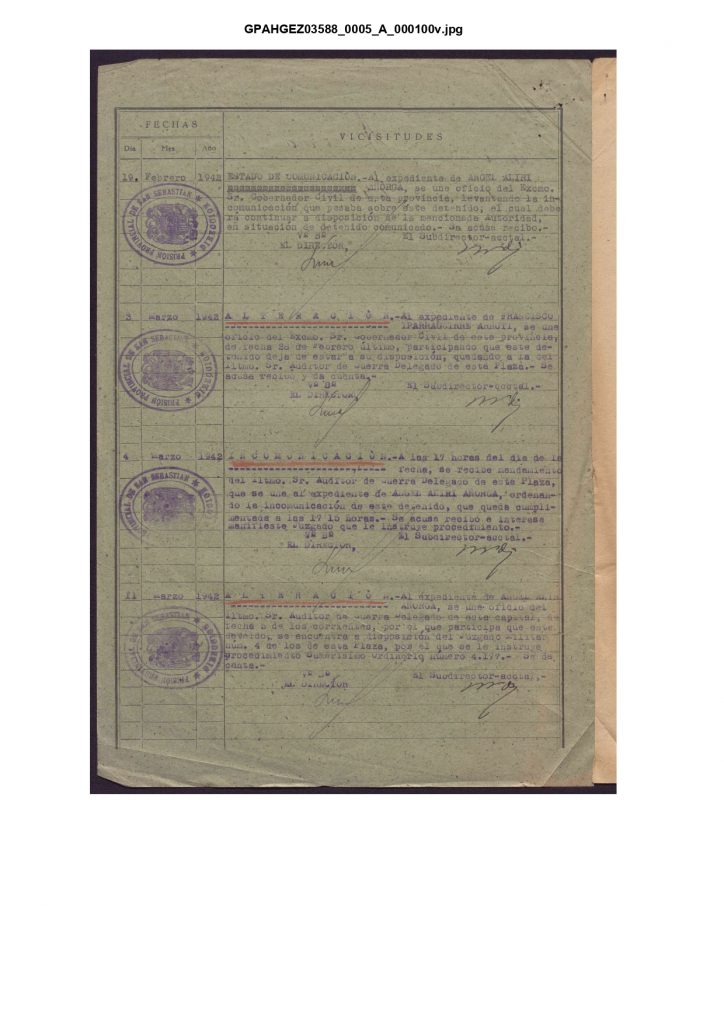 GPAHGEZ03588_0005_A_000100v.jpg
FECHAS
VICISITUDES
Día Mes Año
19. Febrero 1942 ESTADO DE COMUNICACIÓN.-Al expediente de ANGEL ALIRI
ANORGA, se une oficio del Excmo.
Sr. Gobernador Civil de esta provincia, levantando la in-
comunicación que pesaba sobre este detenido, el cual debe-
rá continuar a disposición de la mencionada Autoridad,
en situación de detenido comunicado.- Se acusa recibo.-
Vº Bº El Subdirector-acctal.-
EL DIRECTOR,
PRISIÓN PROVINCIAL DE SAN SEBASTIAN
3 marzo 1942 A L T E R A C I Ó N.-Al expediente de FRANCISCO
IPARRAGUIRRE, se une
oficio del Excmo. Sr. Gobernador Civil de este provincia,
de fecha 28 de Febrero último, participando que este de-
tenido deja de estar a su disposición, quedando a la del
Iltmo. Sr. Auditor de Guerra Delegado de esta Plaza.- Se
acusa recibo y da cuenta.-
Vº Bº El Subdirector-acctal.-
EL DIRECTOR,
PRISIÓN PROVINCIAL DE SAN SEBASTIAN
4 marzo 1942 I N C O M U N I C A C I Ó N.-A las 17 horas del día de la
fecha, se recibe mandamiento
del Iltmo. Sr. Auditor de Guerra Delegado de esta Plaza,
que se une al expediente de ANGEL ALIRI ANORGA, ordenan-
do la incomunicación de este detenido, que queda cumpli-
mentada a las 17'15 horas.- Se acusa recibo e interesa
manifieste Juzgado que le instruye procedimiento.-
Vº Bº El Subdirector-acctal.-
EL DIRECTOR,
PROVINCIAL DE SAN SEBASTIAN
11 marzo 1942 A L T E R A C I Ó N.-Al expediente de ANGEL ALIRI
ANORGA, se une oficio del
Iltmo. Sr. Auditor de Guerra Delegado de esta capital, de
fecha 5 de los corrientes, por el que participa que este
detenido, se encuentra a disposición del Juzgado Militar
núm. 4 de los de esta Plaza, por el que se le instruye
procedimiento Sumarísimo Ordinario número 4.177.- Se da
cuenta.-
Vº Bº El Subdirector-acctal.-
EL DIRECTOR
PRISIÓN PROVINCIAL DE SAN SEBASTIAN